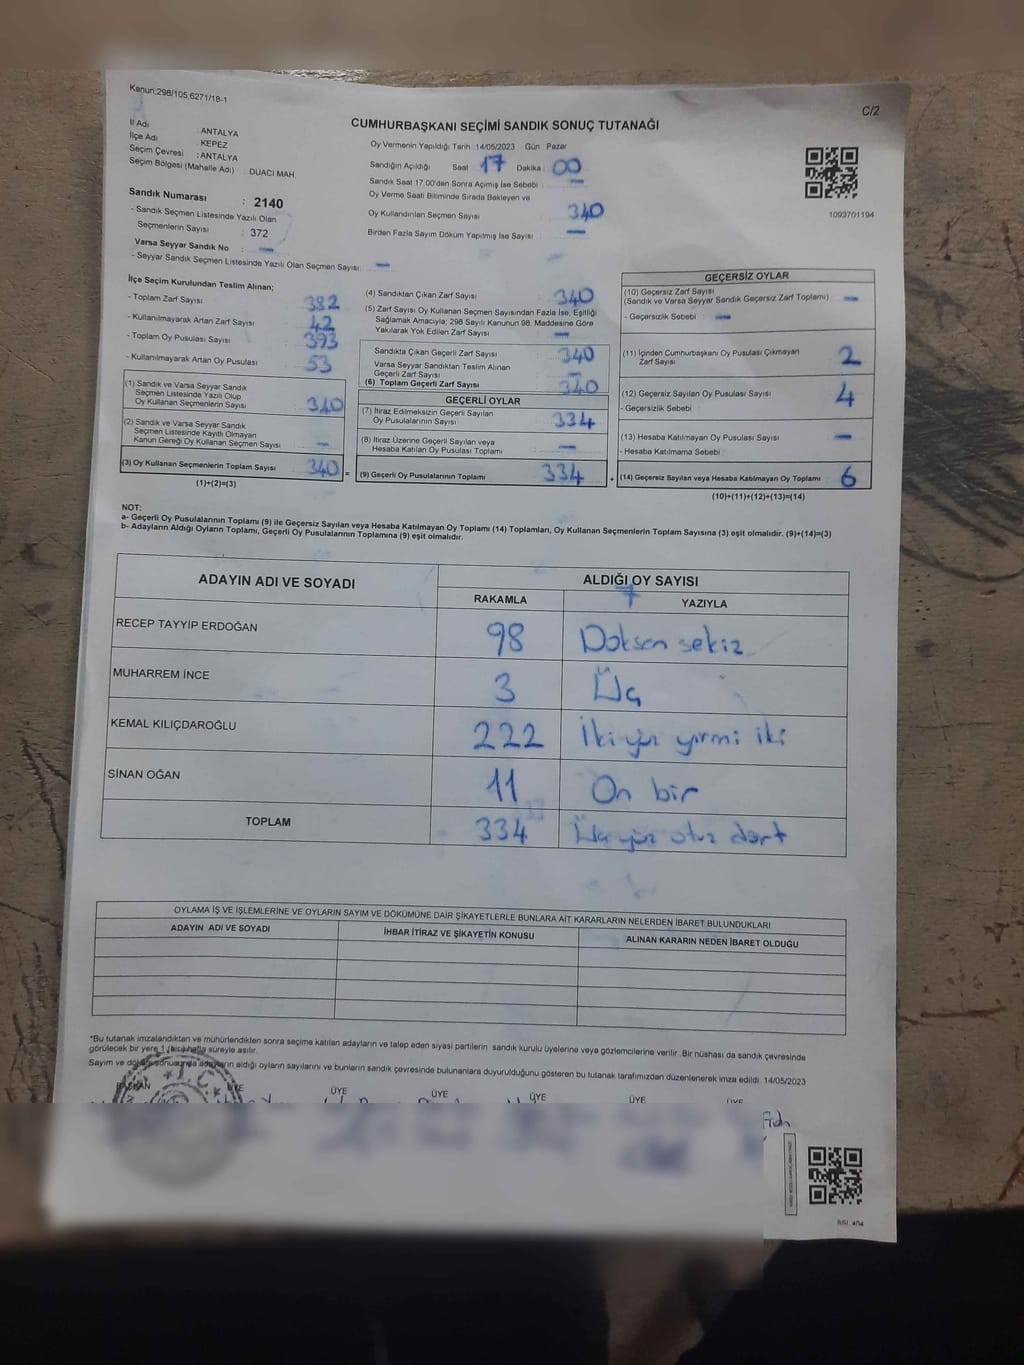 Kanun;298/105,6271/18-1
C/2
CUMHURBAŞKANI SEÇİMİ SANDIK SONUÇ TUTANAĞI
İl Adı : ANTALYA
İlçe Adı : KEPEZ
Seçim Çevresi : ANTALYA
Seçim Bölgesi (Mahalle Adı) : DUACI MAH.
Sandık Numarası : 2140
- Sandık Seçmen Listesinde Yazılı Olan
Seçmenlerin Sayısı : 372
Varsa Seyyar Sandık No : —
- Seyyar Sandık Seçmen Listesinde Yazılı Olan Seçmen Sayısı: —
Oy Vermenin Yapıldığı Tarih :14/05/2023 Gün : Pazar
Sandığın Açıldığı Saat 17 Dakika : 00
Sandık Saat 17:00'den Sonra Açımış İse Sebebi : —
Oy Verme Saati Bitiminde Sırada Bekleyen ve
Oy Kullandırılan Seçmen Sayısı 340
Birden Fazla Sayım Döküm Yapılmış İse Sayısı : —
1093701194
İlçe Seçim Kurulundan Teslim Alınan;
- Toplam Zarf Sayısı : 382
- Kullanılmayarak Artan Zarf Sayısı : 42
- Toplam Oy Pusulası Sayısı : 393
- Kullanılmayarak Artan Oy Pusulası : 53
(1) Sandık ve Varsa Seyyar Sandık
Seçmen Listesinde Yazılı Olup
Oy Kullanan Seçmenlerin Sayısı : 340
(2) Sandık ve Varsa Seyyar Sandık
Seçmen Listesinde Kayıtlı Olmayan
Kanun Gereği Oy Kullanan Seçmen Sayısı : —
(3) Oy Kullanan Seçmenlerin Toplam Sayısı : 340 =
(1)+(2)=(3)
(4) Sandıktan Çıkan Zarf Sayısı : 340
(5) Zarf Sayısı Oy Kullanan Seçmen Sayısından Fazla İse, Eşitliği
Sağlamak Amacıyla; 298 Sayılı Kanunun 98. Maddesine Göre
Yakılarak Yok Edilen Zarf Sayısı : —
Sandıkta Çıkan Geçerli Zarf Sayısı : 340
Varsa Seyyar Sandıktan Teslim Alınan
Geçerli Zarf Sayısı : —
(6) Toplam Geçerli Zarf Sayısı : 340
GEÇERLİ OYLAR
(7) İtiraz Edilmeksizin Geçerli Sayılan
Oy Pusulasının Sayısı : 334
(8) İtiraz Üzerine Geçerli Sayılan veya
Hesaba Katılan Oy Pusulası Toplamı : —
(9) Geçerli Oy Pusulalarının Toplamı : 334 +
GEÇERSİZ OYLAR
(10) Geçersiz Zarf Sayısı
(Sandık ve Varsa Seyyar Sandık Geçersiz Zarf Toplamı) : —
- Geçersizlik Sebebi : —
(11) İçinden Cumhurbaşkanı Oy Pusulası Çıkmayan
Zarf Sayısı : 2
(12) Geçersiz Sayılan Oy Pusulası Sayısı : 4
- Geçersizlik Sebebi :
(13) Hesaba Katılmayan Oy Pusulası Sayısı : —
- Hesaba Katılmama Sebebi :
(14) Geçersiz Sayılan veya Hesaba Katılmayan Oy Toplamı : 6
(10)+(11)+(12)+(13)=(14)
NOT:
a- Geçerli Oy Pusulalarının Toplamı (9) ile Geçersiz Sayılan veya Hesaba Katılmayan Oy Toplamı (14) Toplamları, Oy Kullanan Seçmenlerin Toplam Sayısına (3) eşit olmalıdır. (9)+(14)=(3)
b- Adayların Aldığı Oyların Toplamı, Geçerli Oy Pusulalarının Toplamına (9) eşit olmalıdır.
ADAYIN ADI VE SOYADI ALDIĞI OY SAYISI
RAKAMLA YAZIYLA
RECEP TAYYİP ERDOĞAN 98 Doksan sekiz
MUHARREM İNCE 3 Üç
KEMAL KILIÇDAROĞLU 222 İki yüz yirmi iki
SİNAN OĞAN 11 On bir
TOPLAM 334 Üç yüz otuz dört
OYLAMA İŞ VE İŞLEMLERİNE VE OYLARIN SAYIM VE DÖKÜMÜNE DAİR ŞİKAYETLERLE BUNLARA AİT KARARLARIN NELERDEN İBARET BULUNDUKLARI
ADAYIN ADI VE SOYADI İHBAR İTİRAZ VE ŞİKAYETİN KONUSU ALINAN KARARIN NEDEN İBARET OLDUĞU
*Bu tutanak imzalandıktan ve mühürlendikten sonra seçime katılan adayların ve talep eden siyasi partilerin sandık kurulu üyelerine veya gözlemcilerine verilir. Bir nüshası da sandık çevresinde
görülecek bir yere 1 (bir) hafta süreyle asılır.
Sayım ve döküm sonucunda adayların aldığı oyların sayılarını ve bunların sandık çevresinde bulunanlara duyurulduğunu gösteren bu tutanak tarafımızdan düzenlenerek imza edildi. 14/05/2023
BAŞKAN ÜYE ÜYE ÜYE ÜYE ÜYE ÜYE
T.C.